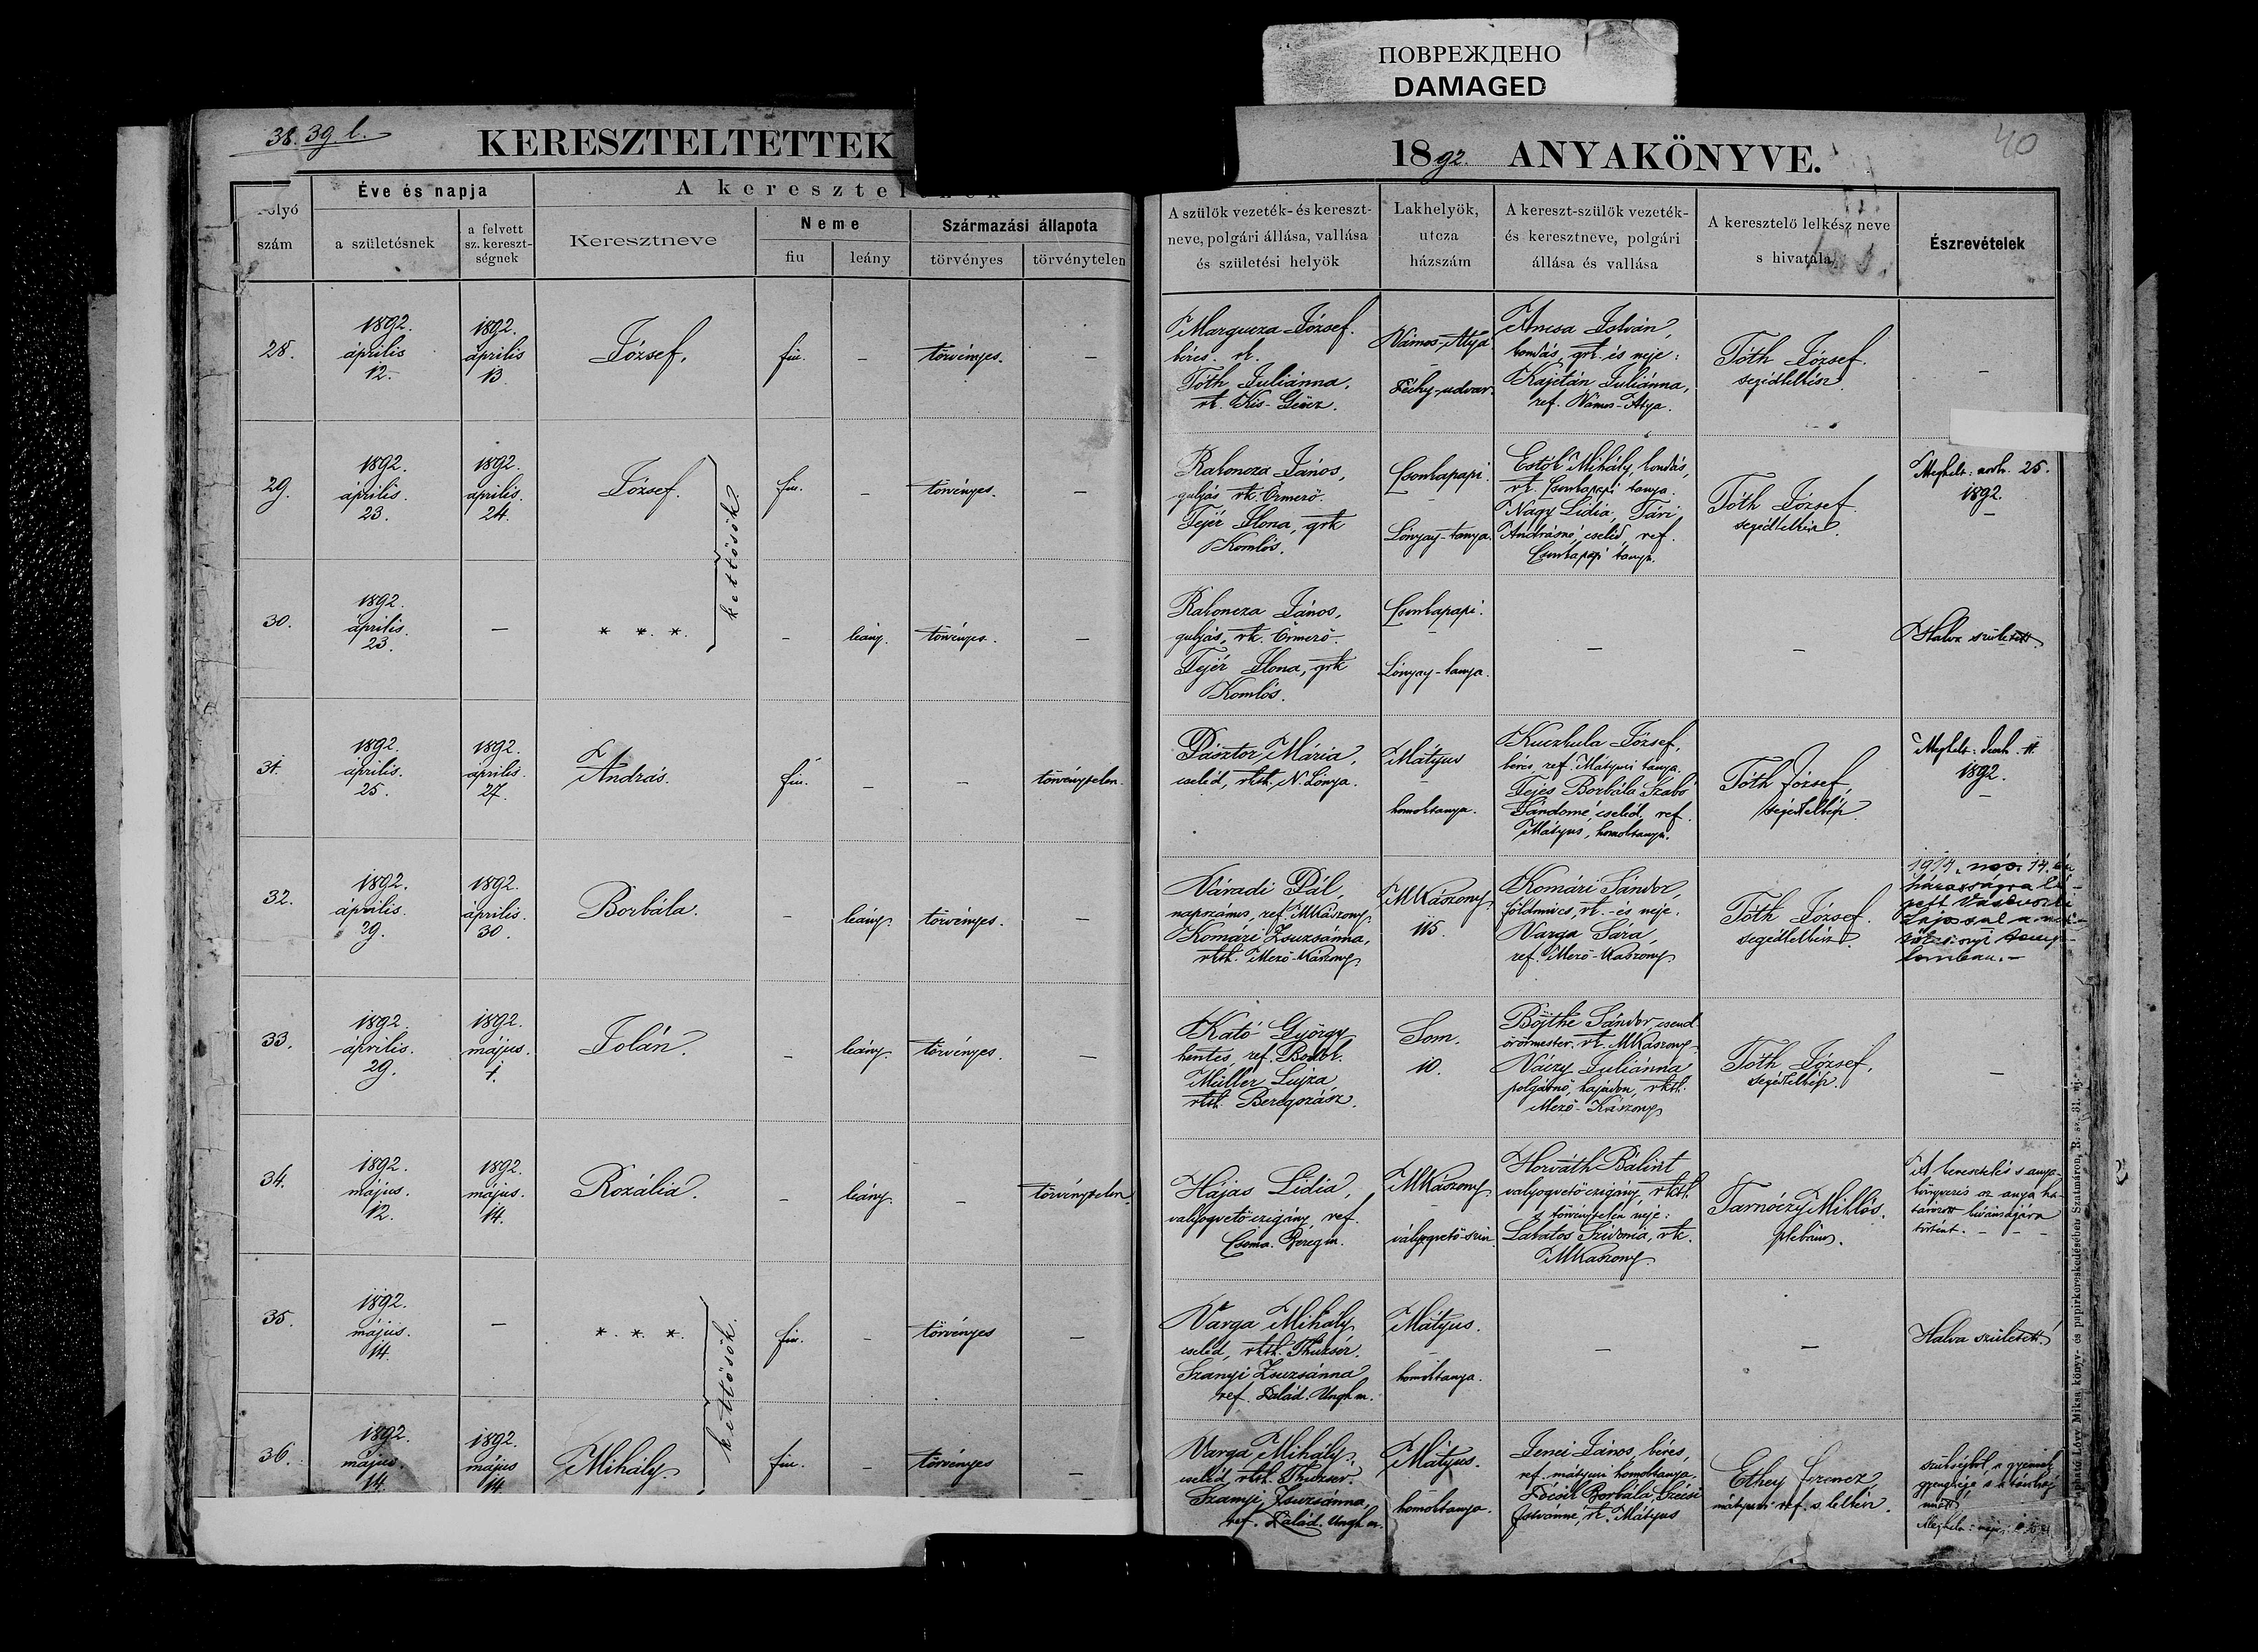 ПОВРЕЖДЕНО
DAMAGED
38. 39 l.
40
KERESZTELTETTEK
1892. ANYAKÖNYVE.
szám
Éve és napja
a születésnek
a felvett
sz. kereszt-
ségnek
A keresztel
Keresztneve
Neme
fiu
leány
Származási állapota
törvényes
törvénytelen
A szülök vezeték- és kereszt-
neve, polgári állása, vallása
és születési helyök
Lakhelyök,
utcza
házszám
A kereszt-szülök vezeték-
és keresztneve, polgári
állása és vallása
A keresztelő lelkész neve
s hivatala
Észrevételek
28.
1892.
április
12.
1892.
április
13
József.
fiu.
–
törvényes.
–
József.
béres. rk.
Tóth Juliánna,
rk. Kis-Géücz.
Vámos-Atya.
udvar.
István,
kondás, grk. és neje:
Kajetán Juliánna,
ref. Vámos-Atya.
Tóth József.
segédlelkész.
–
29.
1892.
április.
23.
1892.
április.
24.
József.
kettősök.
fiu.
–
törvényes.
–
Rakoncza János,
gulyás rk. Őrmező.
Fejér Ilona, grk
Komlós.
Csonkapapi.
Lónyay-tanya.
Mihály, kondás,
rk. Csonkapapi tanya.
Nagy Lidia, Tári
Andrásné, cseléd, ref.
Csonkapapi tanya.
Tóth József.
segédlelkész.
25.
1892.
–
30.
1892.
április.
23.
–
* * *
–
leány.
törvényes.
–
Rakoncza János,
gulyás, rk. Őrmező.
Fejér Ilona, grk
Komlós.
Csonkapapi.
–
Lónyay-tanya.
–
–
Halva született.
31.
1892.
április.
25.
1892.
április.
27.
András.
fiu.
–
–
törvénytelen.
Pásztor Mária,
cseléd, rkth. N. Lónya.
Mátyus
–
homoktanya.
József,
béres ref. Mátyusi tanya.
Fejes Borbála Szabó
Sándorné, cseléd, ref.
Mátyus, homoktanya.
Tóth József,
segédlelkész
1892.
–
32.
1892.
április.
29.
1892.
április.
30.
Borbála.
–
leány.
törvényes.
–
Váradi Pál,
napszámos, ref. MKászony.
Komári Zsuzsánna,
rkth. Mező-Kászony.
MKászony.
115.
Komári Sándor,
földmives, rk. és neje.
Varga Sára,
ref. Mező-Kaszony.
Tóth József.
segédlelkész.
33.
1892.
április.
29.
1892.
május.
1.
Jolán.
–
leány.
törvényes.
–
Kató György
hentes, ref.
Müller Lujza,
rkth. Beregszász.
Som.
10.
Böjthe Sándor, csend-
őrörmester, rk. MKászony.
Váczy Juliánna
polgárnő, hajadon, rkth.
Mező-Kászony
Tóth József,
segédlelkész.
–
34.
1892.
május.
12.
1892.
május.
14.
Rozália.
–
leány.
–
törvénytelen
Hajas Lidia,
valyogvető czigány, ref.
Csoma. Beregm.
MKászony.
Horváth Bálint
valyogvető czigány, rkth.
s törvénytelen neje:
Lakatos Szidonia, rk.
MKaszony.
Tarnóczy Miklós.
plébános.
A keresztelés s anya-
könyvezés az anya ha-
tározott kivánságára
történt. – – –
35.
1892.
május.
14.
–
* * *
kettősök.
fiu.
–
törvényes
–
Varga Mihály
cseléd, rkth. Thuzsér.
Szanyi Zsuzsánna
ref. Unghm.
Mátyus.
–
homoktanya.
–
–
Halva született.
36.
1892.
május.
14.
1892.
május
14.
Mihály.
fiu.
–
törvényes
–
Varga Mihály,
cseléd, rkth. Thuzsér.
Szanyi Zsuzsánna,
ref. Unghm.
Mátyus.
homoktanya.
Jenei János, béres,
ref. mátyusi homoktanya.
Borbála, Szécsi
Istvánné, rk. Mátyus
Ferencz,
mátyusi ref. s. lelkész.